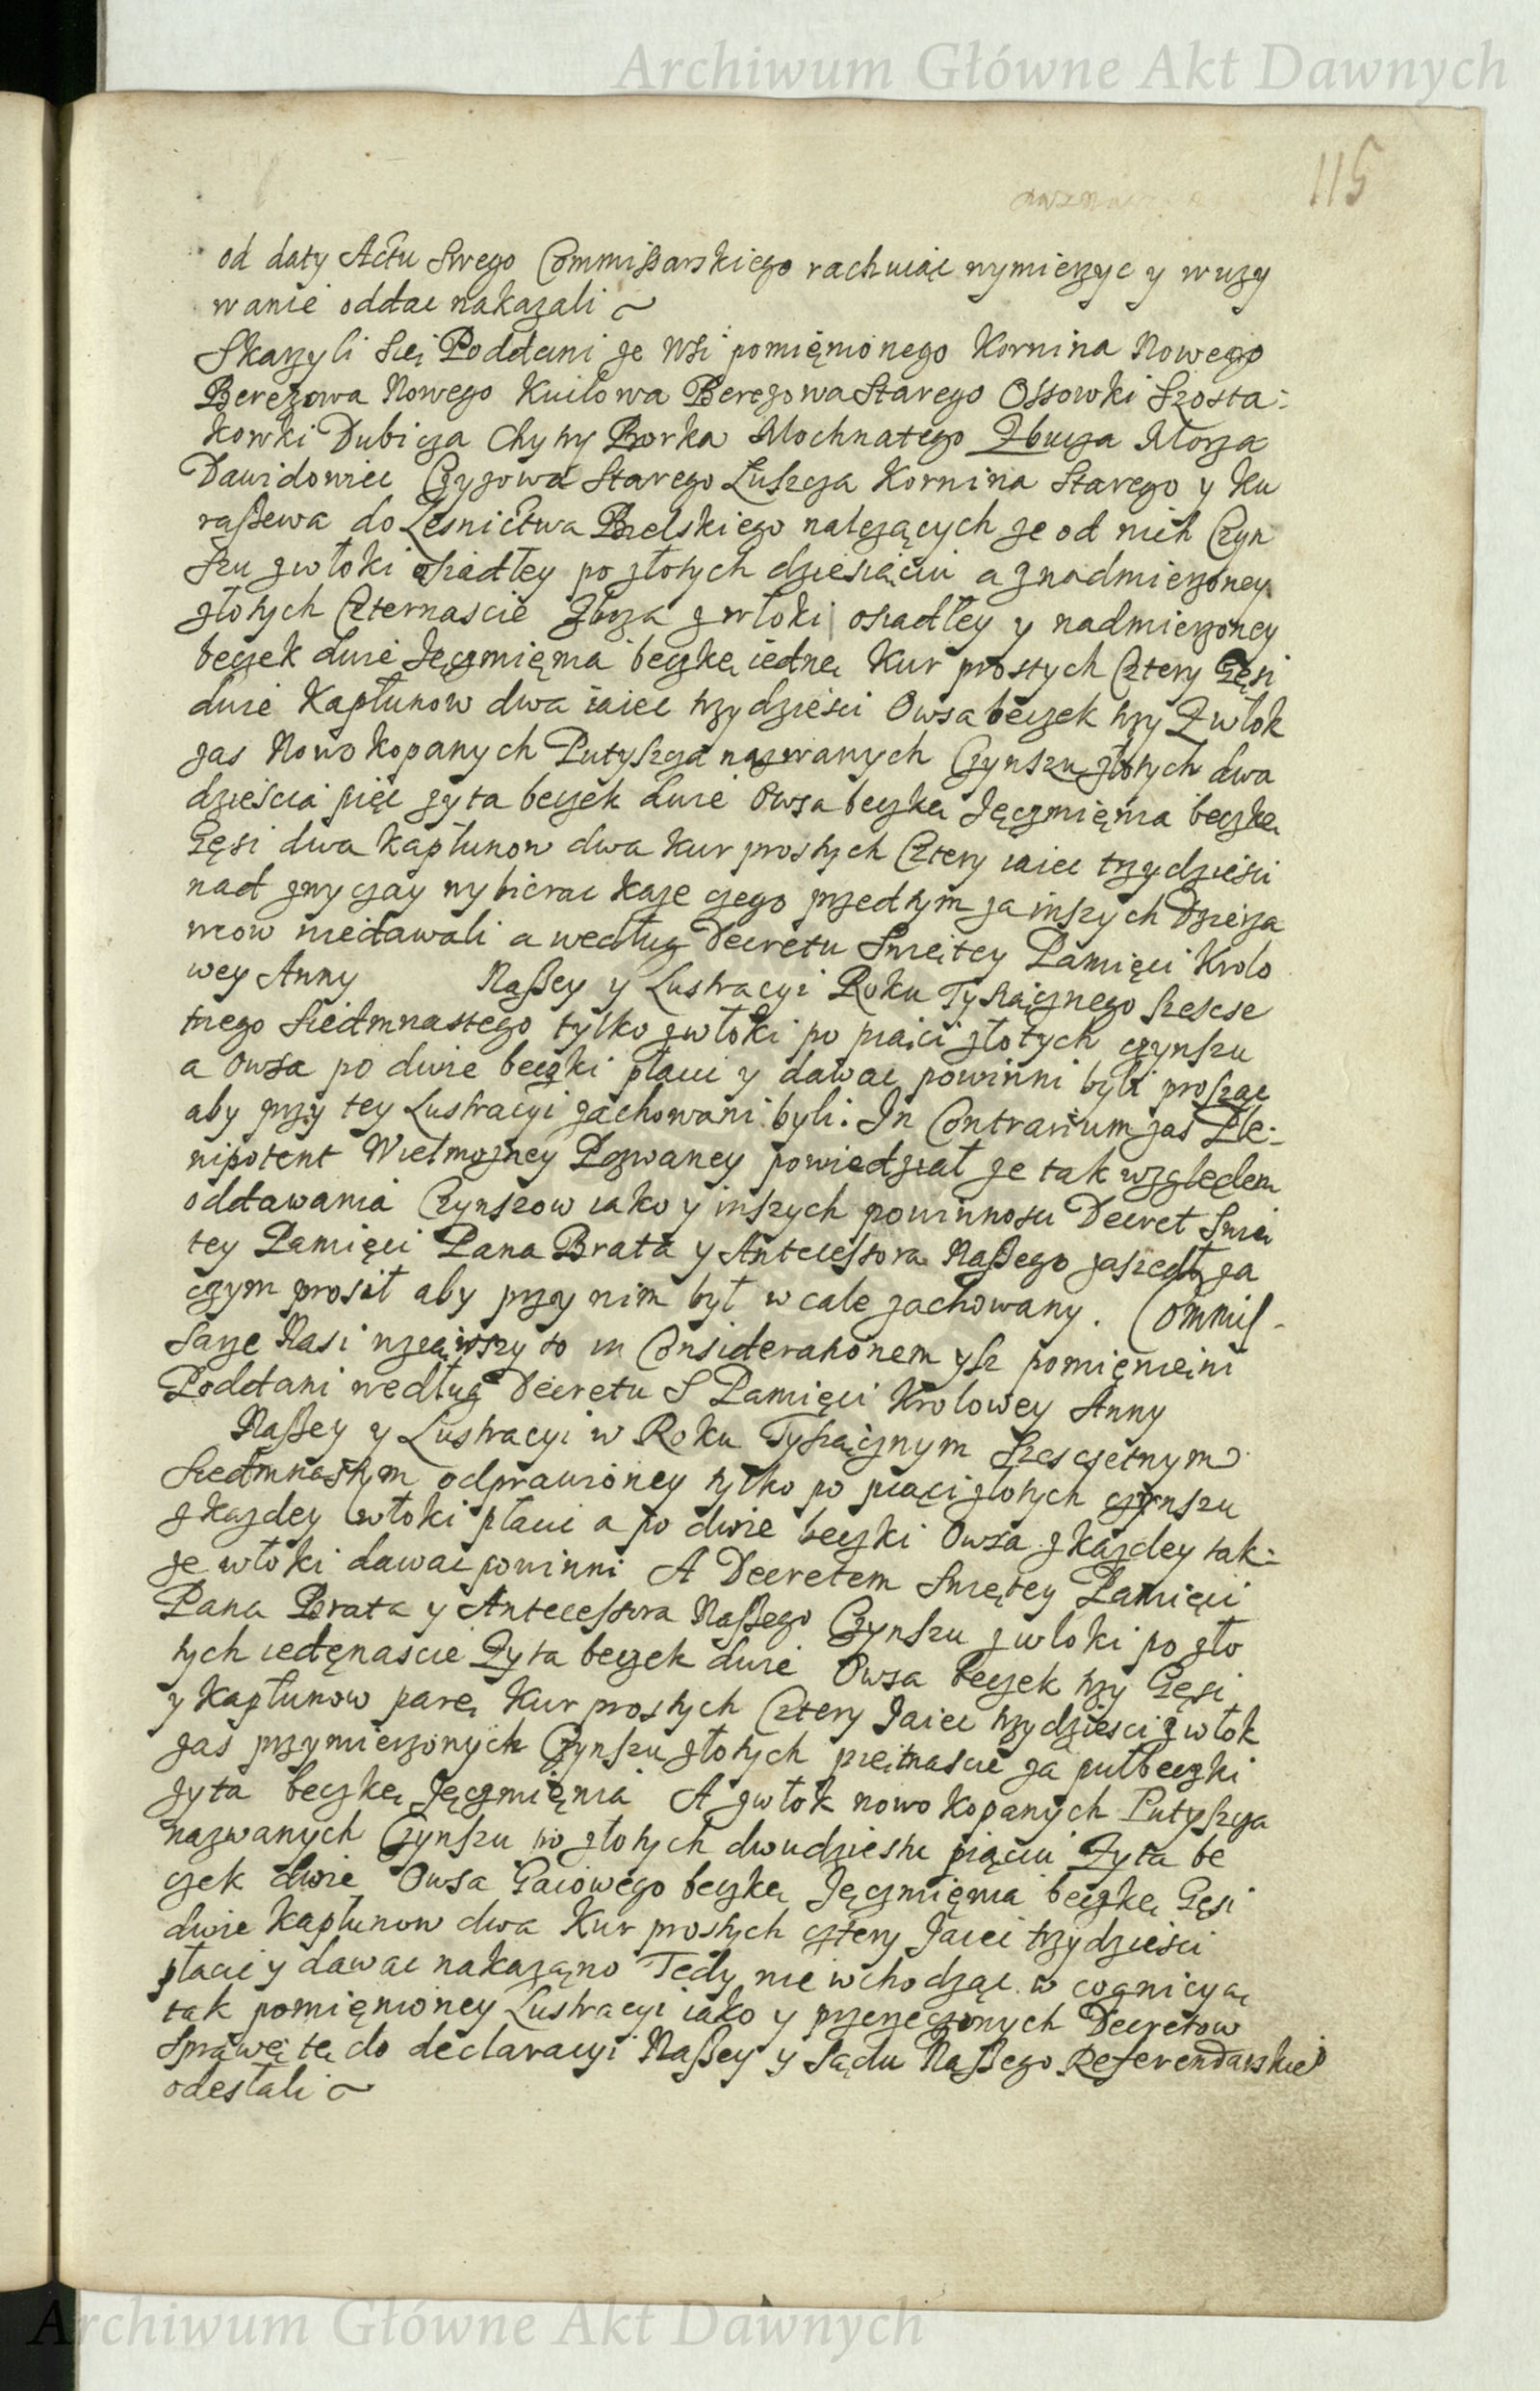 Archiwum Główne Akt Dawnych
115
od daty Actu Swego Commissarskiego rachuiąc wymierzyc y w uzy
wanie oddac nakazali ~
Skarzyli Się Poddani ze Wsi pomięnionego Kornina Nowego
Berezowa Nowego Kuilowa Berezowa Starego Ossowki Szosta-
kowki Dubicza Chytry Borka Mochnatego Zbucza Morza
Dawidowiec Czyzowa Starego Łuszcza Kornina Starego y Ku
raszewa do Lesnictwa Bielskiego nalezących ze od nich Czyn
szu z włoki osiadłey po złotych dziesiąciu a z nadmierzoney
złotych Czternascie Zboza z włoki osiadłey y nadmierzoney
beczek dwie Jęczmięnia beczkę iednę Kur prostych Cztery Gęsi
dwie Kapłunow dwa iaiec trzydziesci Owsa beczek trzy Z włok
zas Nowo kopanych Putyszcza nazwanych Czynszu złotych dwa
dziescia pięc zyta beczek dwie Owsa beczkę Jęczmięnia beczkę
Gęsi dwa Kapłunow dwa kur prostych Cztery iaiec trzydziesci
nad zwyczay wybierac kaze czego przedtym za inszych Dzierza
wcow niedawali a według Decretu Swiętey Pamięci Krolo
wey Anny Naszey y Lustracyi Roku Tysiącznego szescse
tnego Siedmnastego tylko z włoki po piąci złotych czynszu
a Owsa po dwie beczki płaci y dawac powinni byli prosząc
aby przy tey Lustracyi zachowani byli. In Contrarium zas Ple-
nipotent Wielmozney Pozwaney powiedział ze tak względem
oddawania Czynszow iako y inszych powinnosci Decret Swię
tey Pamięci Pana Brata y Antecessora Naszego zaszedł za
czym prosił aby przy nim był w cale zachowany. Commis-
sarze Nasi wziąwszy to in Considerationem ysz pomięnieni
Poddani według Decretu S Pamięci Krolowey Anny
Naszey y Lustracyi w Roku Tysiącznym Szescsetnym
Siedmnastym odprawioney tylko po piąci złotych czynszu
z kazdey włoki płaci a po dwie beczki Owsa z kazdey tak-
ze włoki dawac powinni A Decretem Swiętey Pamięci
Pana Brata y Antecessora Naszego Czynszu z włoki po zło
tych iedęnascie Zyta beczek dwie Owsa beczek trzy Gęsi
y Kapłunow parę Kur prostych Cztery Jaiec trzydziesci z włok
zas przymierzonych Czynszu złotych piętnascie za pułbeczki
zyta beczkę Jęczmięnia A z włok nowo kopanych Putyszcza
nazwanych Czynszu po złotych dwudziestu piąciu Zyta be
czek dwie Owsa Gaiowego beczkę Jęczmięnia beczkę Gęsi
dwie Kapłunow dwa Kur prostych cztery Jaiec trzydziesci
płaci y dawac nakaząno Tedy nie wchodząc w cognicyą
tak pomięnioney Lustracyi iako y przerzeczonych Decretow
Sprawę tę do declaracyi Naszey y Sądu Naszego Referendarskie
odesłali ~
Archiwum Główne Akt Dawnych